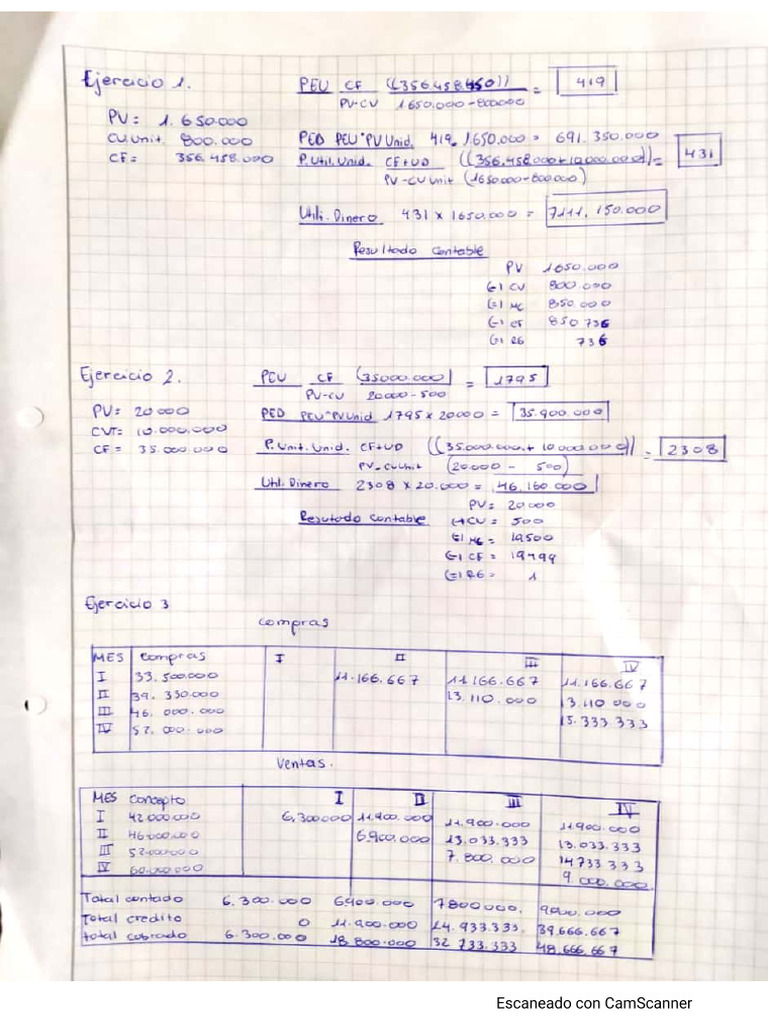 Ejercicio 1.
PV= 1.650.000
CU.Unit. 800.000
CF= 356.458.000
PEU CF ((356.458.450)) = 419
PV-CV 1650.000-800000
PED PEU*PV Unid. 419. 1.650.000= 691.350.000
P.Util.Unid. CF+UD ((356.458000+10000.000)) = 431
PV-CU unit (1650000-800000)
Utili. Dinero 431 x 1650.000 = 7111.150.000
Resultado contable
PV 1650.000
(-) CV 800.000
(=) MC 850.000
(-) CF 850 736
(=) RG 736
Ejercicio 2.
PV= 20000
CVT= 10.000.000
CF= 35.000.000
PEU CF (35000.000) = 1795
PV-CU 20000-500
PED PEU*PVUnid 1795 x 20000 = 35.900.000
P. Unit. Unid. CF+UD ((35.000.000,+ 10000000)) = 2308
PV-CUUnit (20.000 - 500)
Util. Dinero 2308 x 20.000= 46.160.000
Resutado contable
PV= 20000
(-) CU = 500
(=) MC = 19,500
(-) CF = 19499
(=) RG = 1
Ejercicio 3
compras
MES compras I II III IV
I 33.500000 11.166.667 11.166.667 11.166.667
II 39.330.000 13.110.000 13.110 000
III 46.000.000 15.333.333
IV 52.000.000
Ventas.
MES concepto I II III IV
I 42000000 6,300000 11.900.000 11.900.000 11900.000
II 46000.000 6900.000 13.033.333 13.033.333
III 52000000 7.800,000 14733 333
IV 60.000.000 9.000.000
Total contado 6.300.000 6900.000 7800000, 9000.000
Total credito 0 11.900.000 24.933.333, 39,666.667
total cobrado 6.300.000 18.800.000 32 733.333 48,666,667
Escaneado con CamScanner